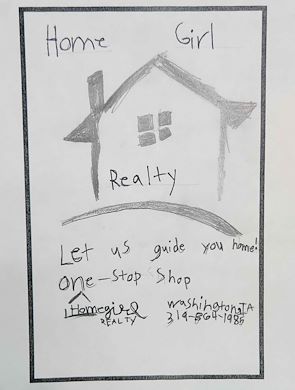 Home Girl
Realty
Let us guide you home!
one-stop shop
Homegirl
REALTY
washington, IA
319-864-1985